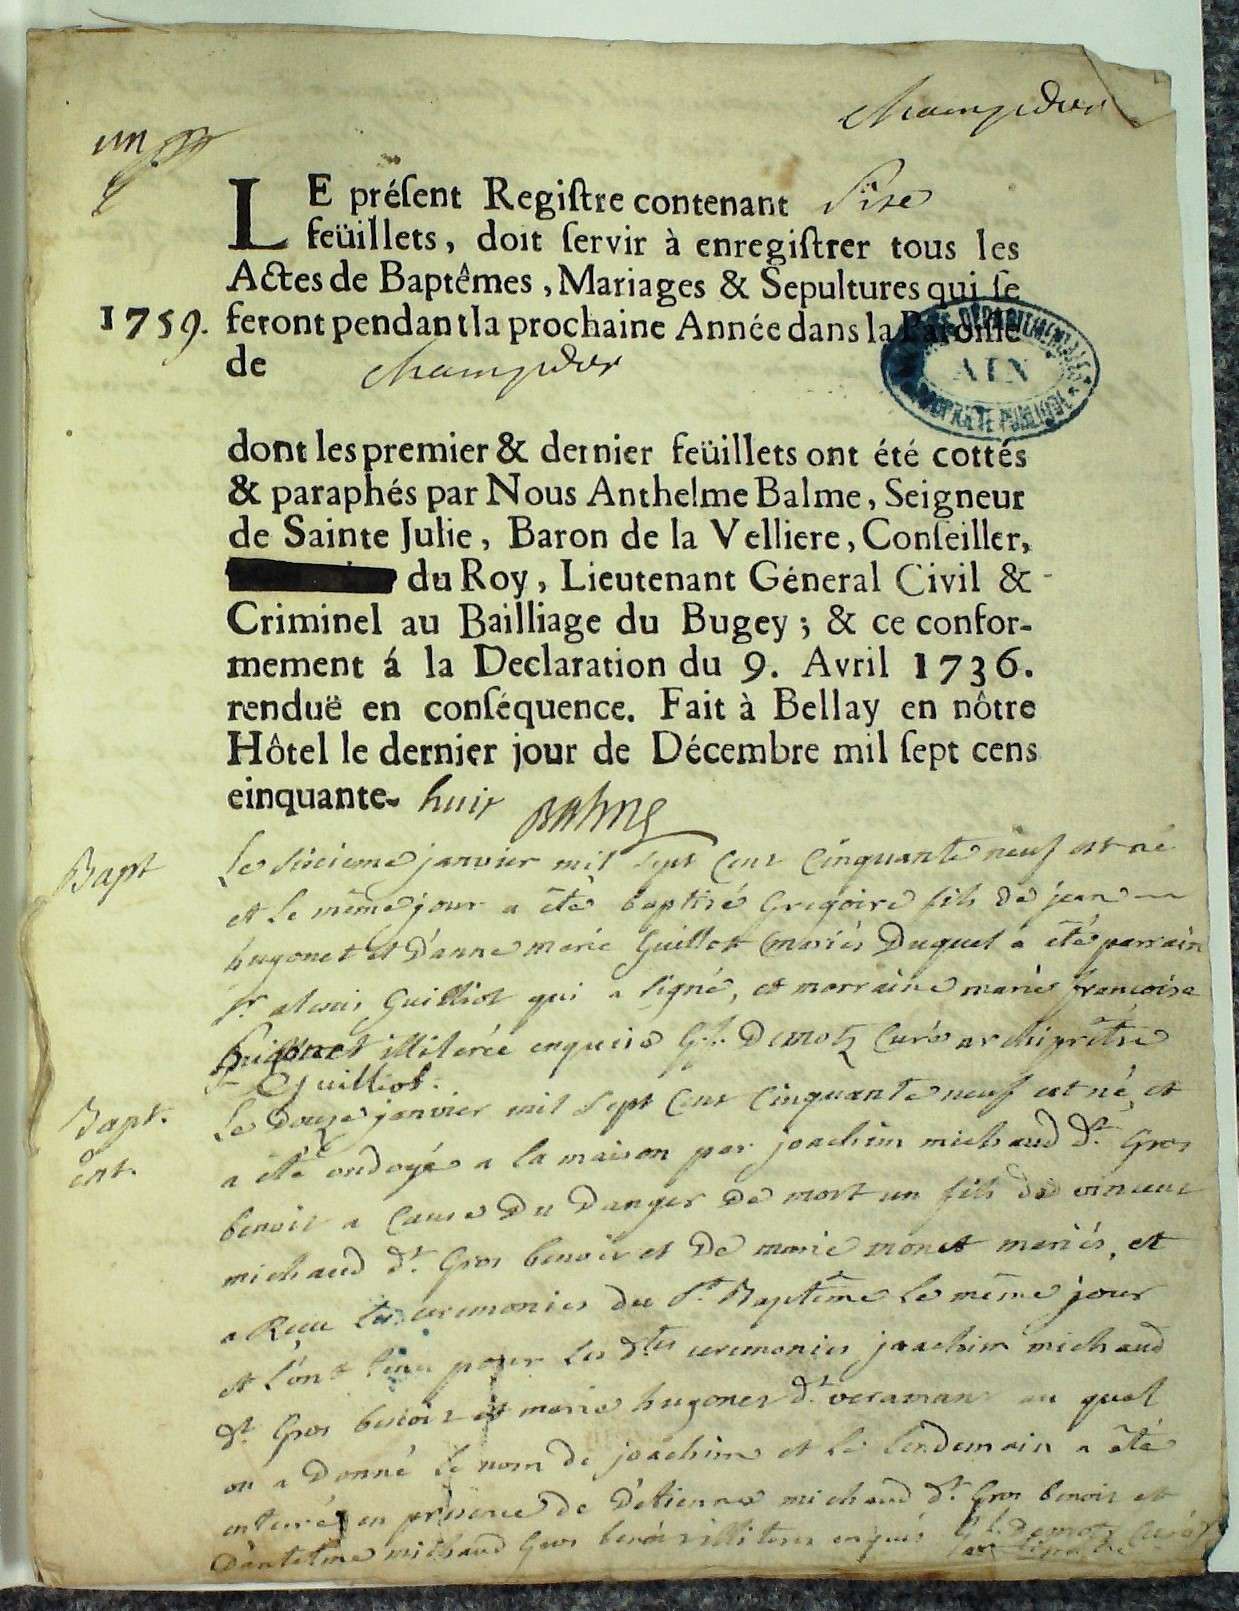 champdor
un
LE préſent Regiſtre contenant Sise
feüillets, doit ſervir à enregiſtrer tous les
Actes de Baptêmes, Mariages & Sepultures qui ſe
1759. feront pendant la prochaine Année dans la Paroiſſe
de champdor
ARCHIVES DÉPARTEMENTALES
AIN
PROPRIÉTÉ PUBLIQUE
dont les premier & dernier feüillets ont été cottés
& paraphés par Nous Anthelme Balme, Seigneur
de Sainte Julie, Baron de la Velliere, Conſeiller,
du Roy, Lieutenant Géneral Civil &
Criminel au Bailliage du Bugey ; & ce confor-
mement á la Declaration du 9. Avril 1736.
renduë en conſéquence. Fait à Bellay en nôtre
Hôtel le dernier jour de Décembre mil ſept cens
einquante- huit Balme
Bapt Le sixieme janvier mil sept cent cinquante neuf est né
et le même jour a été baptisé Gregoire fils de jean
hugonet et d'anne marie Guilliot mariés Duquel a été parrain
Sr. aloais Guilliot qui a signé, et marraine marie françoise
hugonet illiterée enquise G.l. Demotz Curé archiprêtre
Guilliot.
Bapt. Le douze janvier mil sept cent cinquante neuf est né, et
a été ondoyé a la maison par joachim michaud dt. Gros
ent.
benoit a cause du danger de mort un fils de vincent
michaud dt. Gros benoit et de marie monet mariés, et
a Recu les ceremonies du St. Baptême le même jour
et l'ont tenu pour les dtes ceremonies joachim michaud
dt. Gros benoit et marie hugonet dt. veraman au quel
on a donné le nom de joachim et le lendemain a été
enterré en presence de d'etienne michaud dt. Gros benoit et
D'antelme michaud Gros benoit illiteres enquis G.l. Demotz Curé
archiprêtre